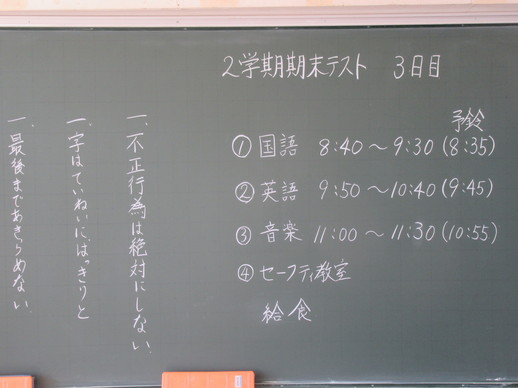 2学期期末テスト 3日目
予鈴
① 国語 8:40～9:30 (8:35)
② 英語 9:50～10:40 (9:45)
③ 音楽 11:00～11:30 (10:55)
④ セーフティ教室
給食
一、不正行為は絶対にしない。
一、字はていねいに、はっきりと
一、最後まであきらめない。